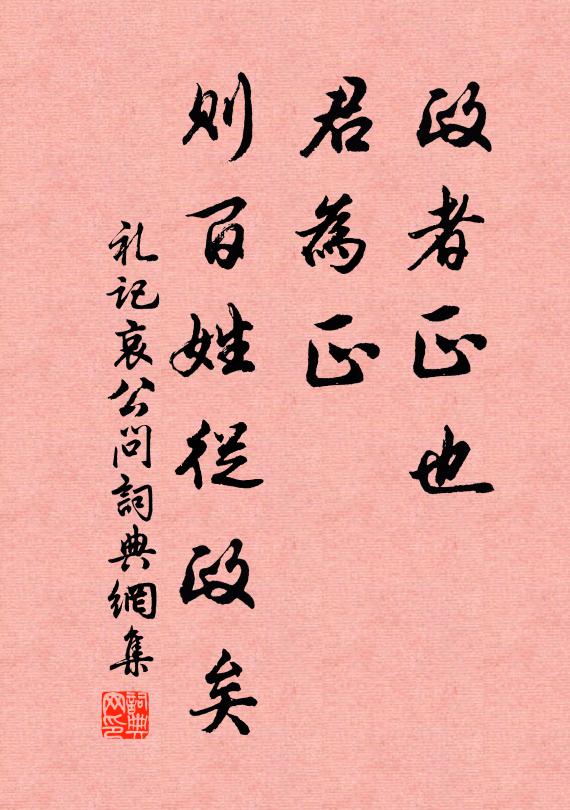 政者正也
君為正
則百姓從政矣
礼記哀公問詞典網集
詞典网印